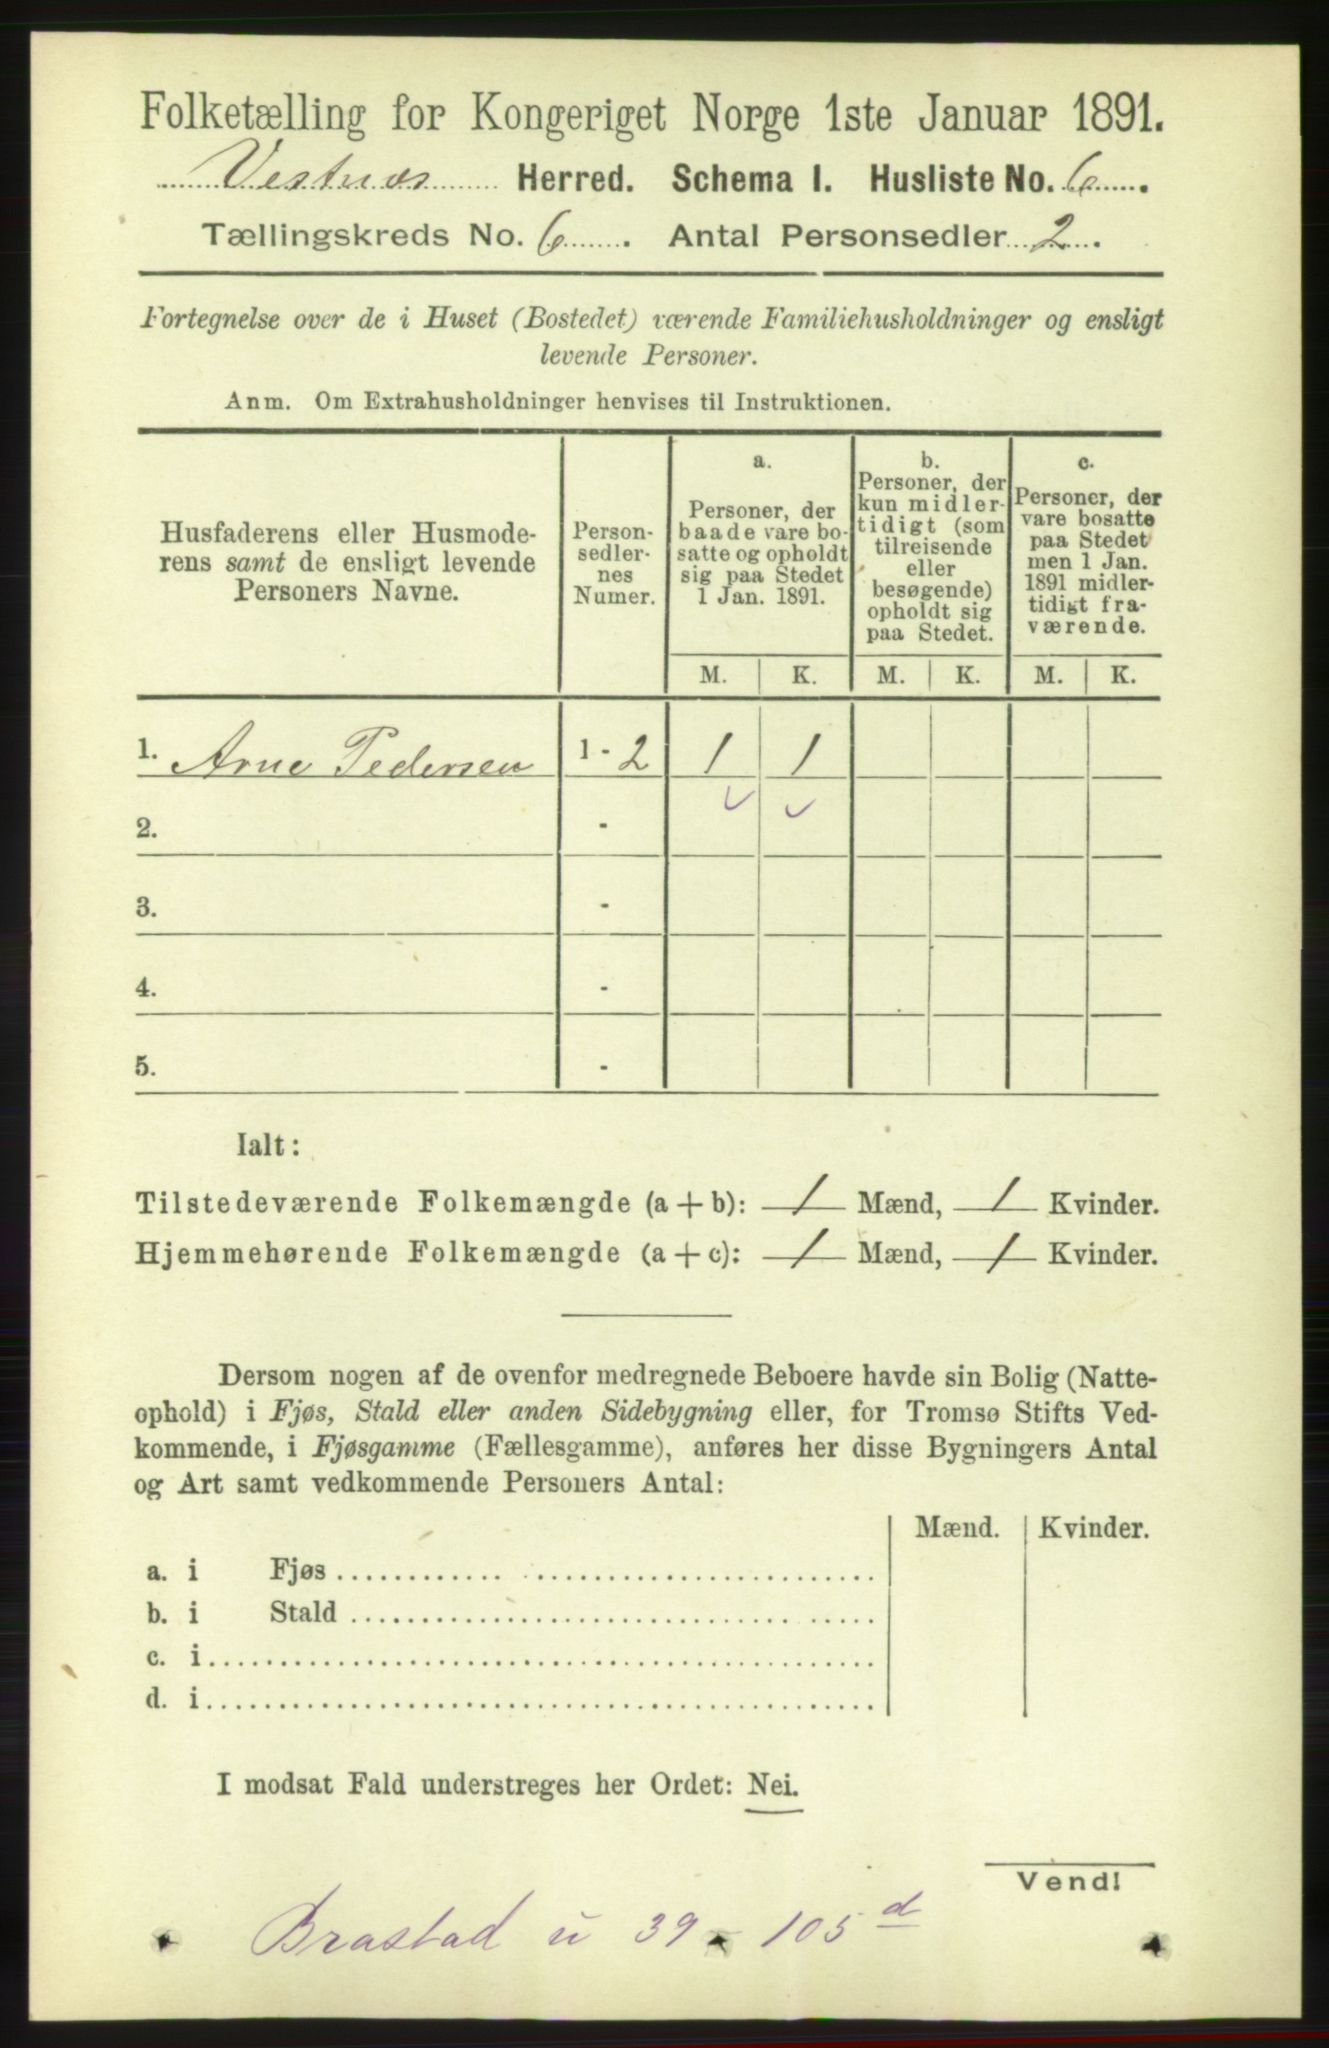 Folketælling for Kongeriget Norge 1ste Januar 1891.
Vestnæs Herred. Schema I. Husliste No. 6.
Tællingskreds No. 6. Antal Personsedler 2.
Fortegnelse over de i Huset (Bostedet) værende Familiehusholdninger og ensligt
levende Personer.
Anm. Om Extrahusholdninger henvises til Instruktionen.
Husfaderens eller Husmode-
rens samt de ensligt levende
Personers Navne.
Person-
sedler-
nes
Numer.
a.
Personer, der
baade vare bo-
satte og opholdt
sig paa Stedet
1 Jan. 1891.
b.
Personer, der
kun midler-
tidigt (som
tilreisende
eller
besøgende)
opholdt sig
paa Stedet.
c.
Personer, der
vare bosatte
paa Stedet
men 1 Jan.
1891 midler-
tidigt fra-
værende.
M. K. M. K. M. K.
1. Arne Pedersen 1 - 2 1 1
2. -
3. -
4. -
5. -
Ialt:
Tilstedeværende Folkemængde (a + b): 1 Mænd, 1 Kvinder.
Hjemmehørende Folkemængde (a + c): 1 Mænd, 1 Kvinder.
Dersom nogen af de ovenfor medregnede Beboere havde sin Bolig (Natte-
ophold) i Fjøs, Stald eller anden Sidebygning eller, for Tromsø Stifts Ved-
kommende, i Fjøsgamme (Fællesgamme), anføres her disse Bygningers Antal
og Art samt vedkommende Personers Antal:
Mænd. Kvinder.
a. i Fjøs
b. i Stald
c. i
d. i
I modsat Fald understreges her Ordet: Nei.
Vend!
Brastad u 39 - 105 d